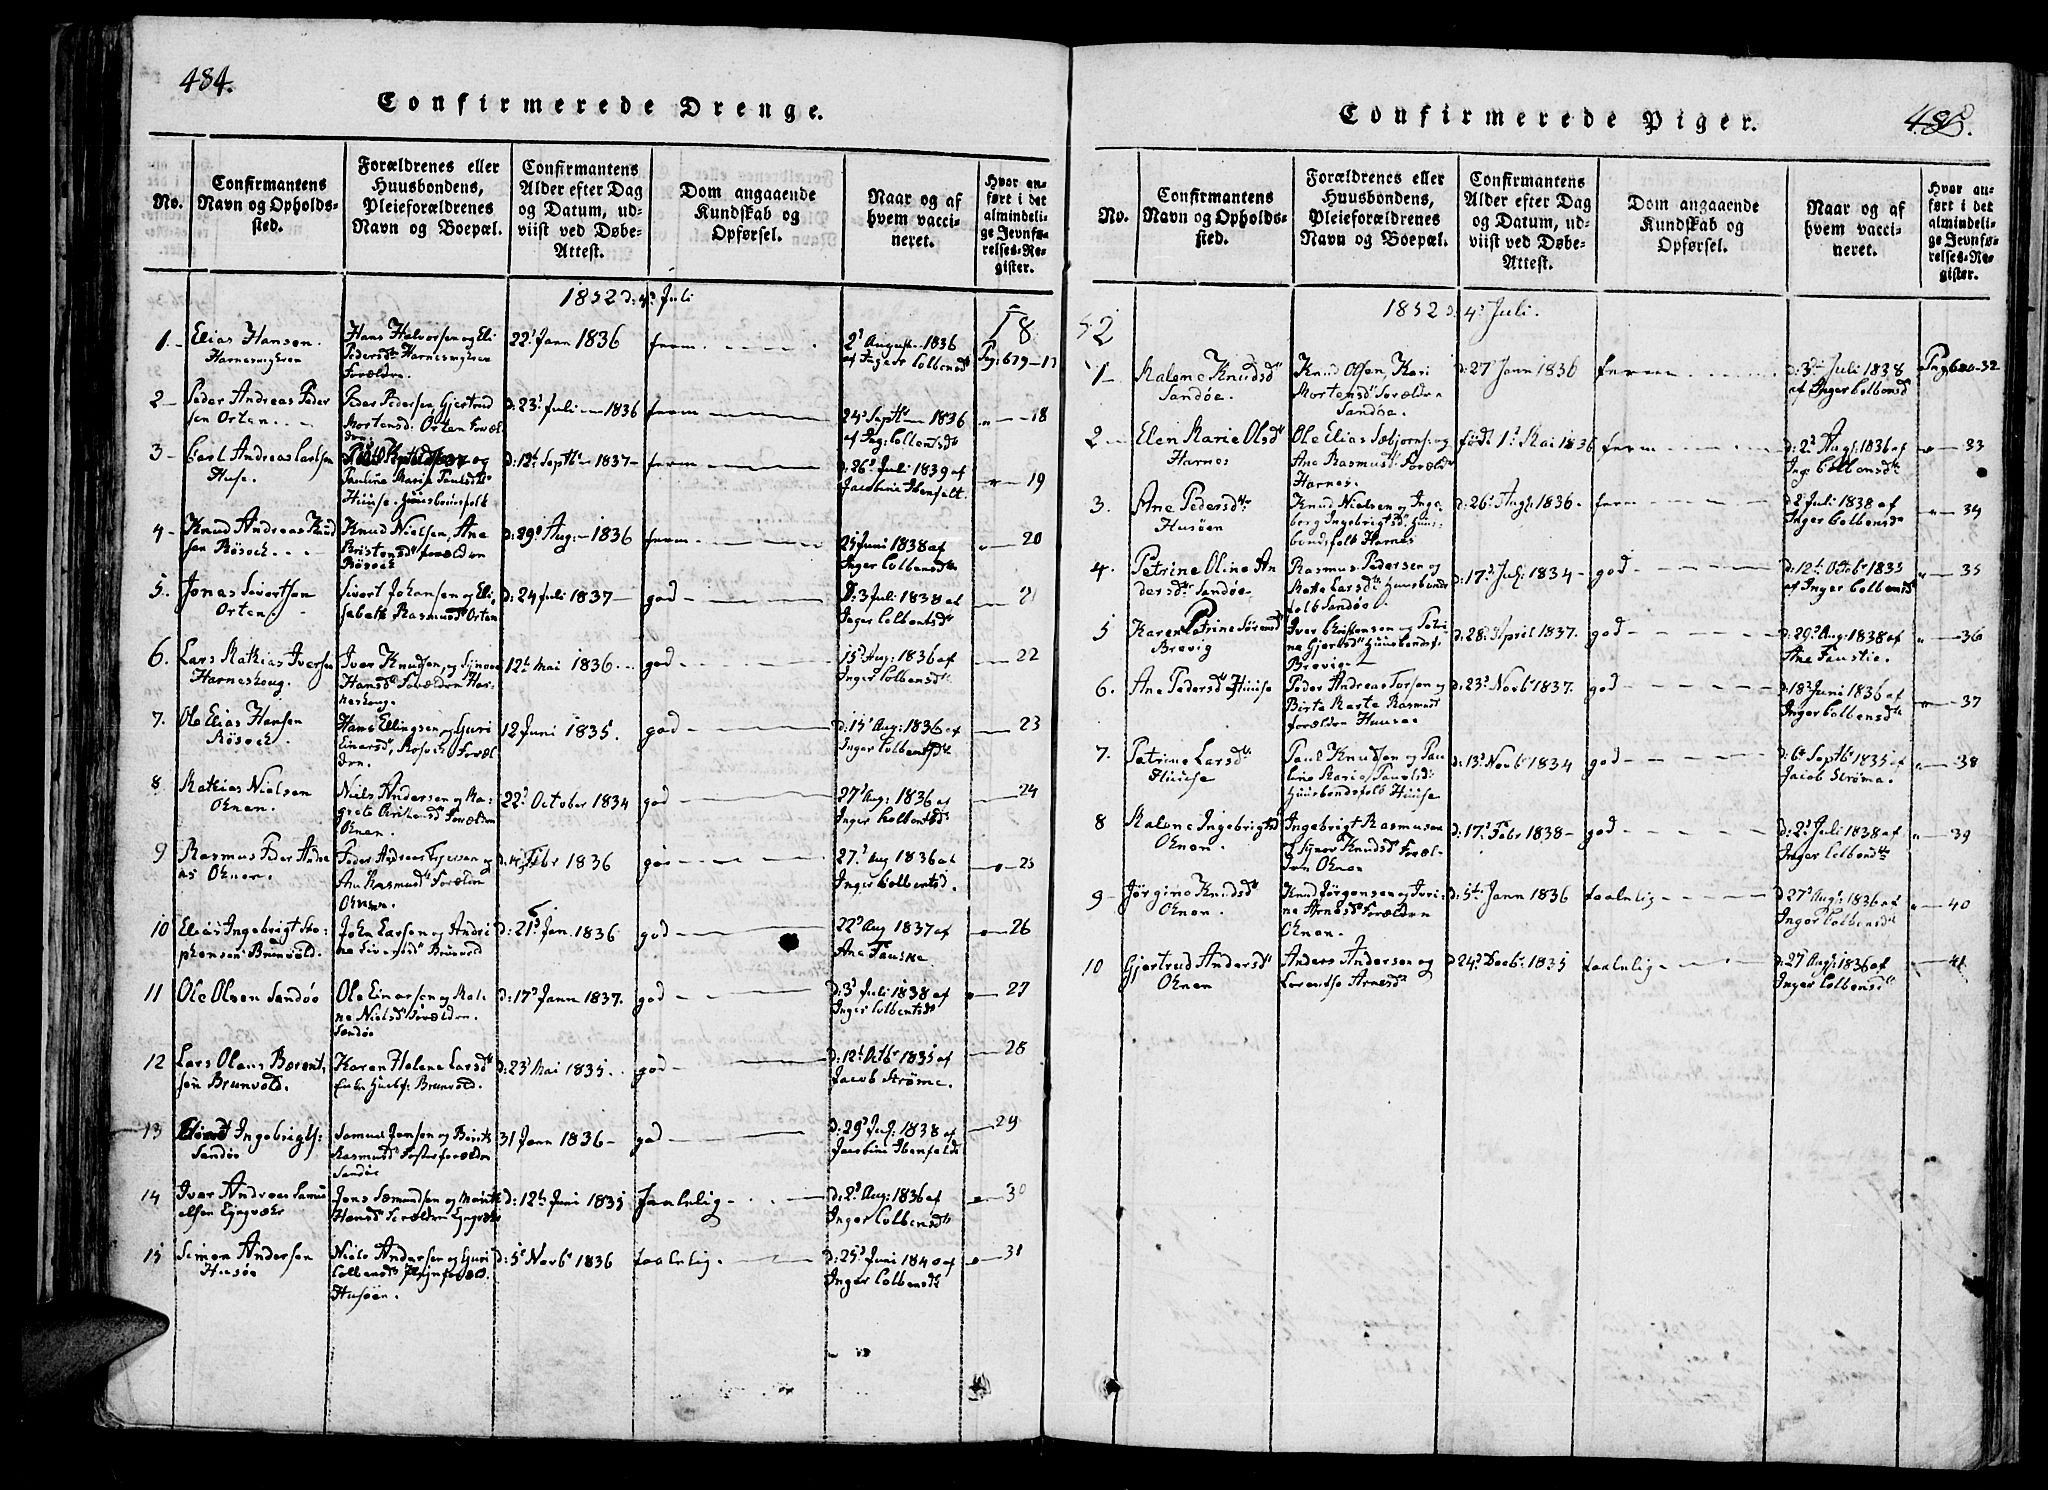 484.
Confirmerede Drenge.
No.
Confirmantens
Navn og Opholds-
sted.
Forældrenes eller
Huusbondens,
Pleieforældrenes
Navn og Boepæl.
Confirmantens
Alder efter Dag
og Datum, ud-
viist ved Døbe-
Attest.
Dom angaaende
Kundskab og
Opførsel.
Naar og af
hvem vacci-
neret.
Hvor an-
ført i det
almindeli-
ge Jevnfø-
relses-Re-
gister.
1852 d: 4de Juli
18
1 Elias Hansen
Harnesmyhren
Hans Halvorsen og Eli
Pedersd. Harnesmyhren
Forældre.
22d Jann 1836
frem
2d August 1836
af Inger Colbensd
Pg: 679-17
2 Peder Andreas Peder
sen Orten
Peder Pedersen Gjertrud
Mortensd: Orten Foræl
dre
d: 23d Juli 1836
frem
24d Septb 1836
af Ing: Colbentsd
18
3 Carl Andreas Carlsen
Huse.
Pauline Marie Paulsd
Huuse Huusbondsfolk
d: 12t Septb 1837
frem
d: 26d Juli 1839 af
Jacobine Ibenfelt.
19
4 Knud Andreas Knud
sen Rösoch
Knud Nielsen, Ane
Kristensd forældre
Rösoch
d: 29d Aug: 1836
frem
25 Juni 1838 af
Inger Colbensd
20
5. Jonas Sivertsen
Orten
Sivert Johansen og Eli
sabeth Rasmusd Orten
d: 24 Juli 1837
god
D: 3 Juli 1838 af
Inger Colbentsd
21
6. Lars Mathias Iversen
Harneshoug.
Iver Knudsen og Synove
Hansd Forældre Har
neshoug.
12t Mai 1836
god
15d Aug: 1836 af
Inger Colbensd
22
7. Ole Elias Hansen
Rösoch
Hans Ellingsen og Guri
Einarsd, Rösoch Foræl
dre.
12 Juni 1835.
god
d: 15d Aug: 1836 af
Inger Colbentsd
23
8 Mathias Nielsen
Oknen.
Niels Andersen og Ma-
grete Eriksd Forældre
Oknen.
22d October 1834
god
27d Aug: 1836 af
Inger Colbentsd
24
9 Rasmus Peder Andre
as Oknen.
Peder Andreas
Ane Rasmusd Forældre
Oknen.
Febr 1836
god
27d Aug 1836 af
Inger Colbentsd.
25
10 Elias Ingebrigt Sto-
phensen Brunvold.
John Larsen og Andri
ne Brunvold
d: 21d Jan. 1836
god
22d Aug 1837 af
Ane Fauske
26
11 Ole Olsen Sandöe
Ole Einarsen og Mal-
ne Nielsd Forældre.
Sandöe
d: 17d Jann 1837.
god
d: 3d Juli 1838 af
Inger Colbentsd
27
12 Lars Olaus Bærent
sen Brunvold.
Karen Helene Larsd
Enke Huusf: Brunvold.
d: 23d Mai 1835.
god
d: 12t Octb 1835 af
Jacob Ströme.
28
13 Ingebrigts:
Sandöe
Samuel Jensen og Berite
Rasmusd Fosterforældre
Sandöe
31 Jann 1836
god
d: 29d Jul: 1838 af
Jacobine Ibenfeldt
29
14 Iver Andreas Samu
elsen Ejegvær
Jens Sæmundsen og Marit
Hansd Forældre
d: 12t Juni 1835
Taalelig
d: 2d Aug: 1836 af
Inger Colbensd
30
15 Simon Andersen
Husöe
Niels Andersen og Guri
Colbensd Plejeforæld.
Husöen.
d: 5t Novb 1836
taalelig.
d: 25d Juni 1840 af
Inger Colbensd
31
485.
Confirmerede Piger.
No.
Confirmantens
Navn og Opholds-
sted.
Forældrenes eller
Huusbondens,
Pleieforældrenes
Navn og Boepæl.
Confirmantens
Alder efter Dag
og Datum, ud-
viist ved Døbe-
Attest.
Dom angaaende
Kundskab og
Opførsel.
Naar og af
hvem vacci-
neret.
Hvor an-
ført i det
almindeli-
ge Jevnfø-
relses-Re-
gister.
52
1852 d. 4d Juli.
1 Malene Knudsd
Sandöe.
Knud Olsen, Kari
Mortensd Forældre
Sandöe.
d: 27 Jann 1836
frem
d: 3d Juli 1838
af Inger Colbensd
Pag 680-32
2 Elen Marie Olsd
Harnes
Ole Elias Sæbjörns: og
Ane Rasmusd Forældre
Harnes.
født 1d Mai 1836
frem
d: 2d Aug: 1836 af
Ing Colbensd
33
3. Ane Pedersd
Husöen
Knud Nielsen og Inge
borg Ingebrigtsd Huus
bondsfolk Harnes
d: 26d Aug: 1836
frem
d 2 Juli 1838 af
Inger Colbensd
34
4. Petrine Oline An
dersd Sandöe
Rasmus Pedersen og
Mette Larsd Huusbonds
folk Sandöe.
d: 17d Jul: 1834
god
d: 12t Octb 1835
af Inger Colbensd
35
5 Karen Petrine Sörensd
Brevig
Iver Christensen og Petri
ne Gjertsd Huusbondsf:
Brevig
d: 28. April 1837.
god
d: 29d Aug: 1838 af
Ane Fauskie.
36
6. Ane Pedersd Huuse
Peder Andreas Torsen og
Birte Marte Rasmusd
forældre Huuse
d: 23d Novb 1837.
god
d: 18d Juni 1836 af
Inger Colbensd
37
7. Petrine Larsd
Huuse
Paul Knudsen og Pau
line Marie Paulsd:
Huusbondsfolk Huuse
d: 13d Novb 1834
god
d: 6te Septb 1835 af
Jacob Ströme.
38
8 Malene Ingebrigtsd
Oknen.
Ingebrigt Rasmusen
og Synov Knudsd Foræl-
dre Oknen
d: 17d Febr 1838
god
d: 2d Juli 1838 af
Inger Colbend
39
9 Jörgine Knudsd
Oknen.
Knud Jörgensen og Iveri-
ne Arnesd Forældre
Oknen.
d: 5t Jann 1836
taalelig
d: 27d Aug: 1836 af
Inger Colbensd
40
10 Gjertrud Andersd
Oknen
Anders Andersen og
Lorentse Arnesd
d: 24d Decb: 1835
taalelig
d: 27 Aug: 1836 af
Inger Colbensd
41